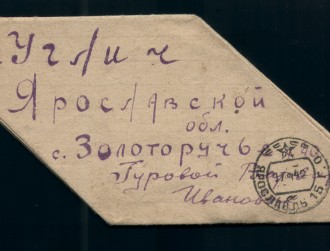 Углич
Ярославской
обл.
с. Золоторучье
Гуровой
Иванов
ЯРОСЛАВЛЬ